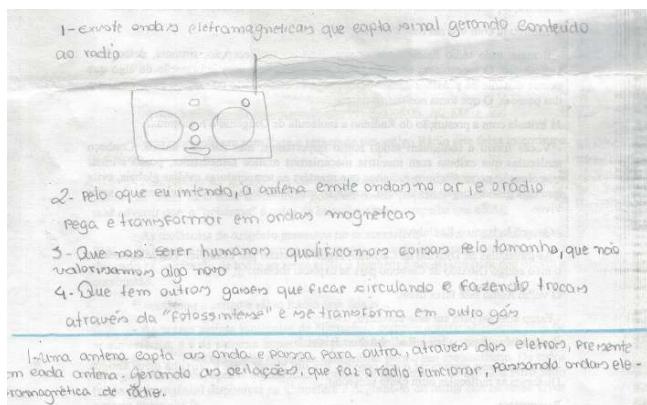 1- existe ondas eletramagneticas que capta sinal gerando conteúdo
ao radio
2- Pelo oque eu intendo, a antena emite ondas no ar, e o rádio
pega e transformar em ondas magneticas
3- Que nois serer humanos qualificamos coisas pelo tamanho, que não
valorisamos algo novo
4- Que tem outros gases que ficar circulando e fazendo trocas
através da "fotossintese" e se transforma em outro gás
1- uma antena capta as onda e passa para outra, através dos eletrons, presente
em cada antena. Gerando as oscilações, que faz o rádio funcionar, passando ondas ele-
tromagnética de rádio.